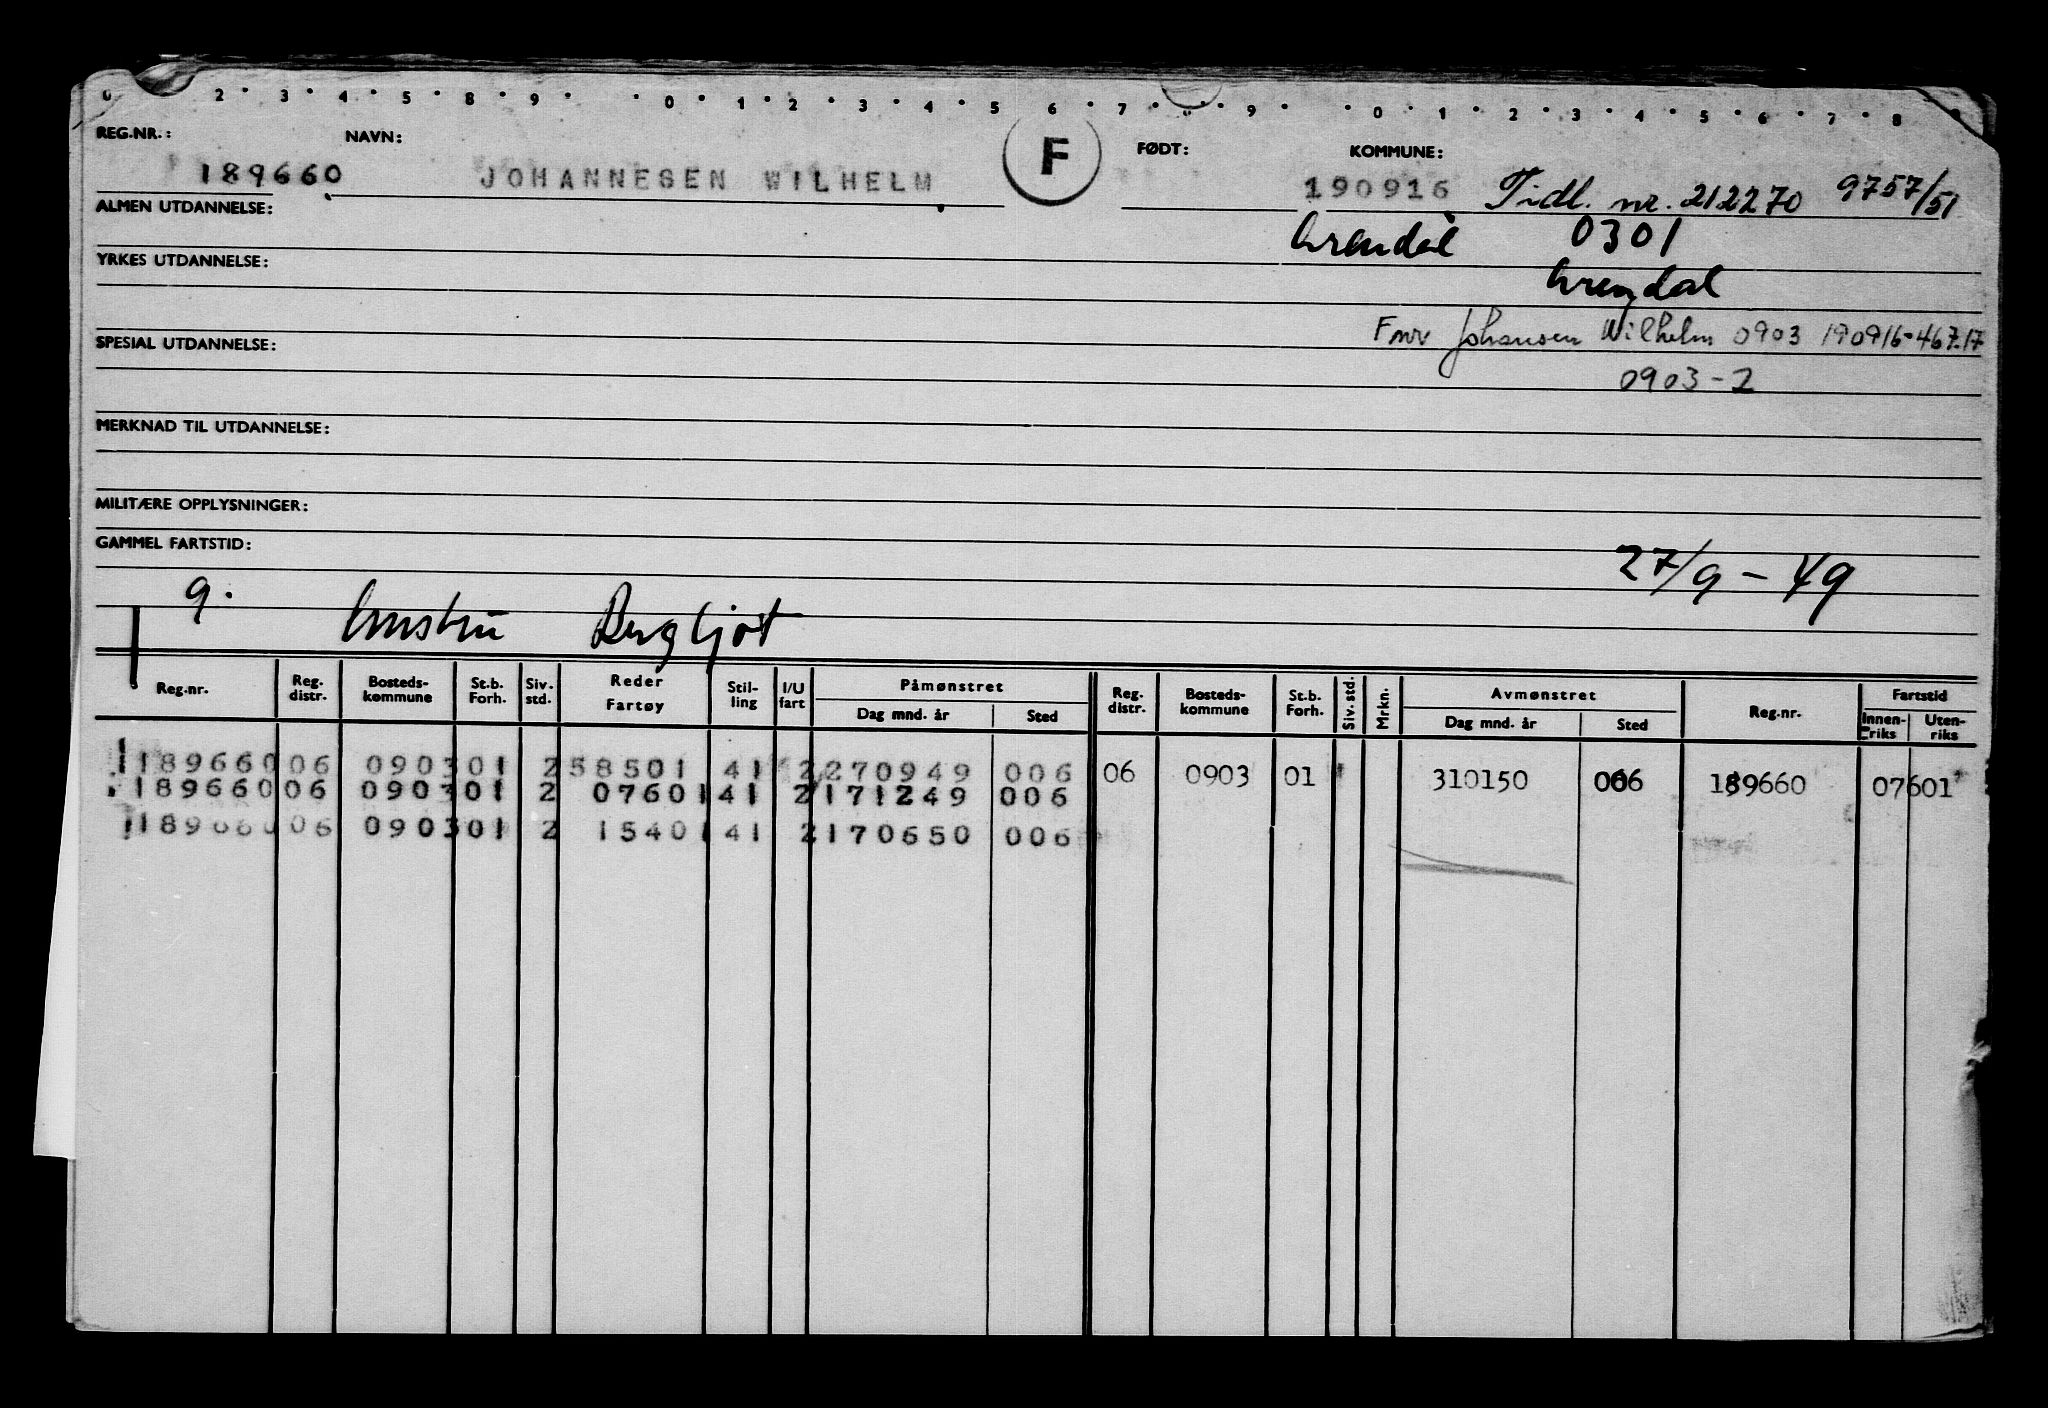 0 2 · 3 · 4 · 5 · 8 · 9 · · 0 · 1 · 2 · 3 · 4 · 5 · 6 · 7 · 8 · 9 · · 0 · 1 · 2 · 3 · 4 · 5 · 6 · 7 · 8 9
REG.NR.: NAVN: F FØDT: KOMMUNE:
189660 JOHANNESEN WILHELM 190916 Tidl. nr. 212270 9757/51
ALMEN UTDANNELSE: Arendal 0301
YRKES UTDANNELSE: Arendal
Fnr Johansen Wilhelm 0903 190916-46717
SPESIAL UTDANNELSE: 0903-2
MERKNAD TIL UTDANNELSE:
MILITÆRE OPPLYSNINGER:
GAMMEL FARTSTID: 27/9-49
9. Bergljot
Reg.nr. Reg. distr. Bosteds- kommune St.b. Forh. Siv. std. Reder Fartøy Stil- ling I/U fart Påmønstret Dag mnd. år Sted Reg. distr. Bosteds- kommune St.b. Forh. Siv. std. Mrkn. Avmønstret Dag mnd. år Sted Reg.nr. Fartstid Innen- riks Uten- riks
1189660 06 0903 01 2 58501 41 2 270949 006 06 0903 01 310150 006 189660 07601
189660 06 0903 01 2 07601 41 2 171249 006
1189660 06 0903 01 2 15401 41 2 170650 006